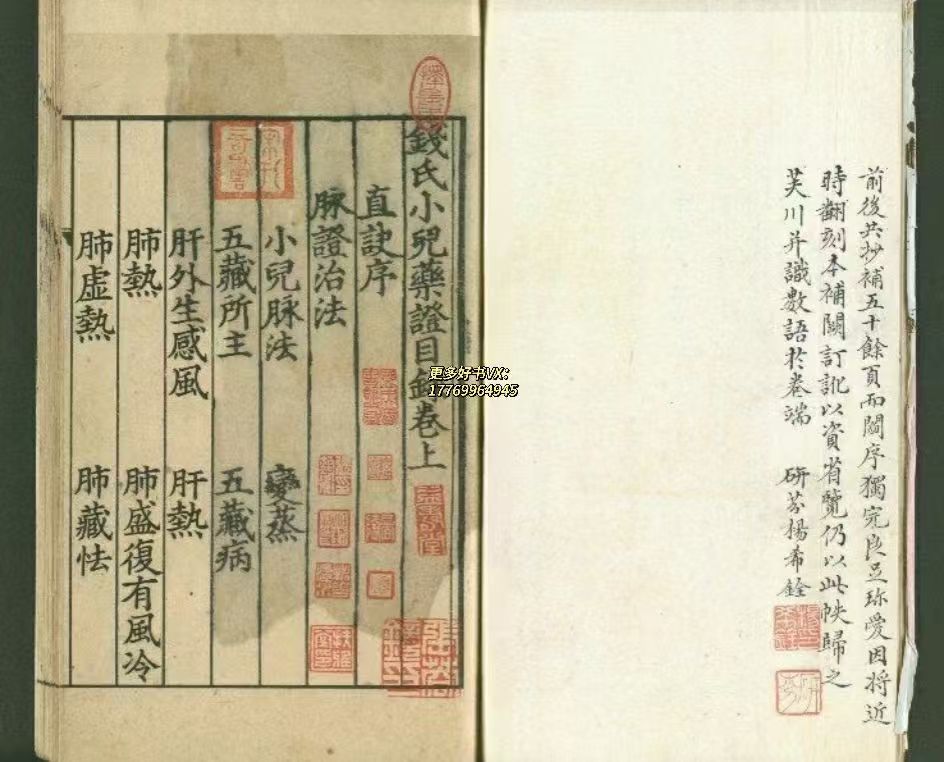 前後共抄補五十餘頁而闕序獨完良足珍愛因將近
時翻刻本補闕訂訛以資省覽仍以此帙歸之
芙川并識數語於卷端　研芬楊希銓
錢氏小兒藥證目錄卷上
直訣序
脉證治法
小兒脉法　變蒸
五藏所主　五藏病
肝外生感風　肝熱
肺熱　肺盛復有風冷
肺虛熱　肺藏怯
更多好书VX:
17769964945